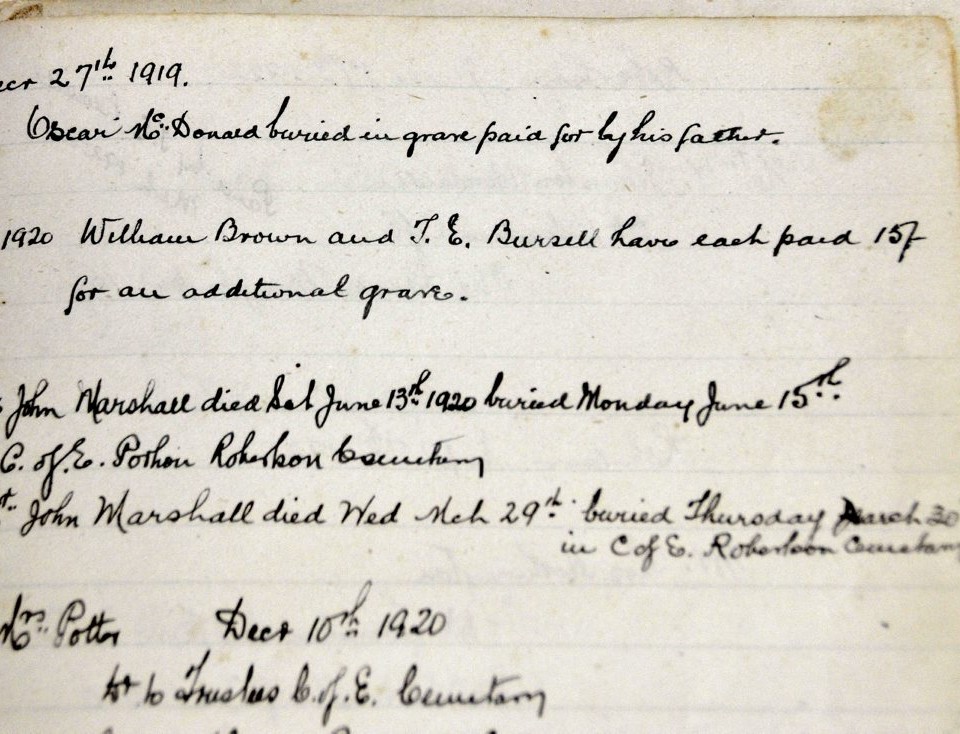 Decr 27th 1919.
Oscar Mc Donald buried in grave paid for by his father.
1920 William Brown and T. E. Bursell have each paid 15/-
for an additional grave.
John Marshall died Sat June 13th 1920 buried Monday June 15th
C. of E. Portion Robertson Cemetary
John Marshall died Wed Mch 29th buried Thursday March 30
in C of E. Robertson Cemetary
Mrs Potter Decr 10th 1920
to Trustees C. of E. Cemetary